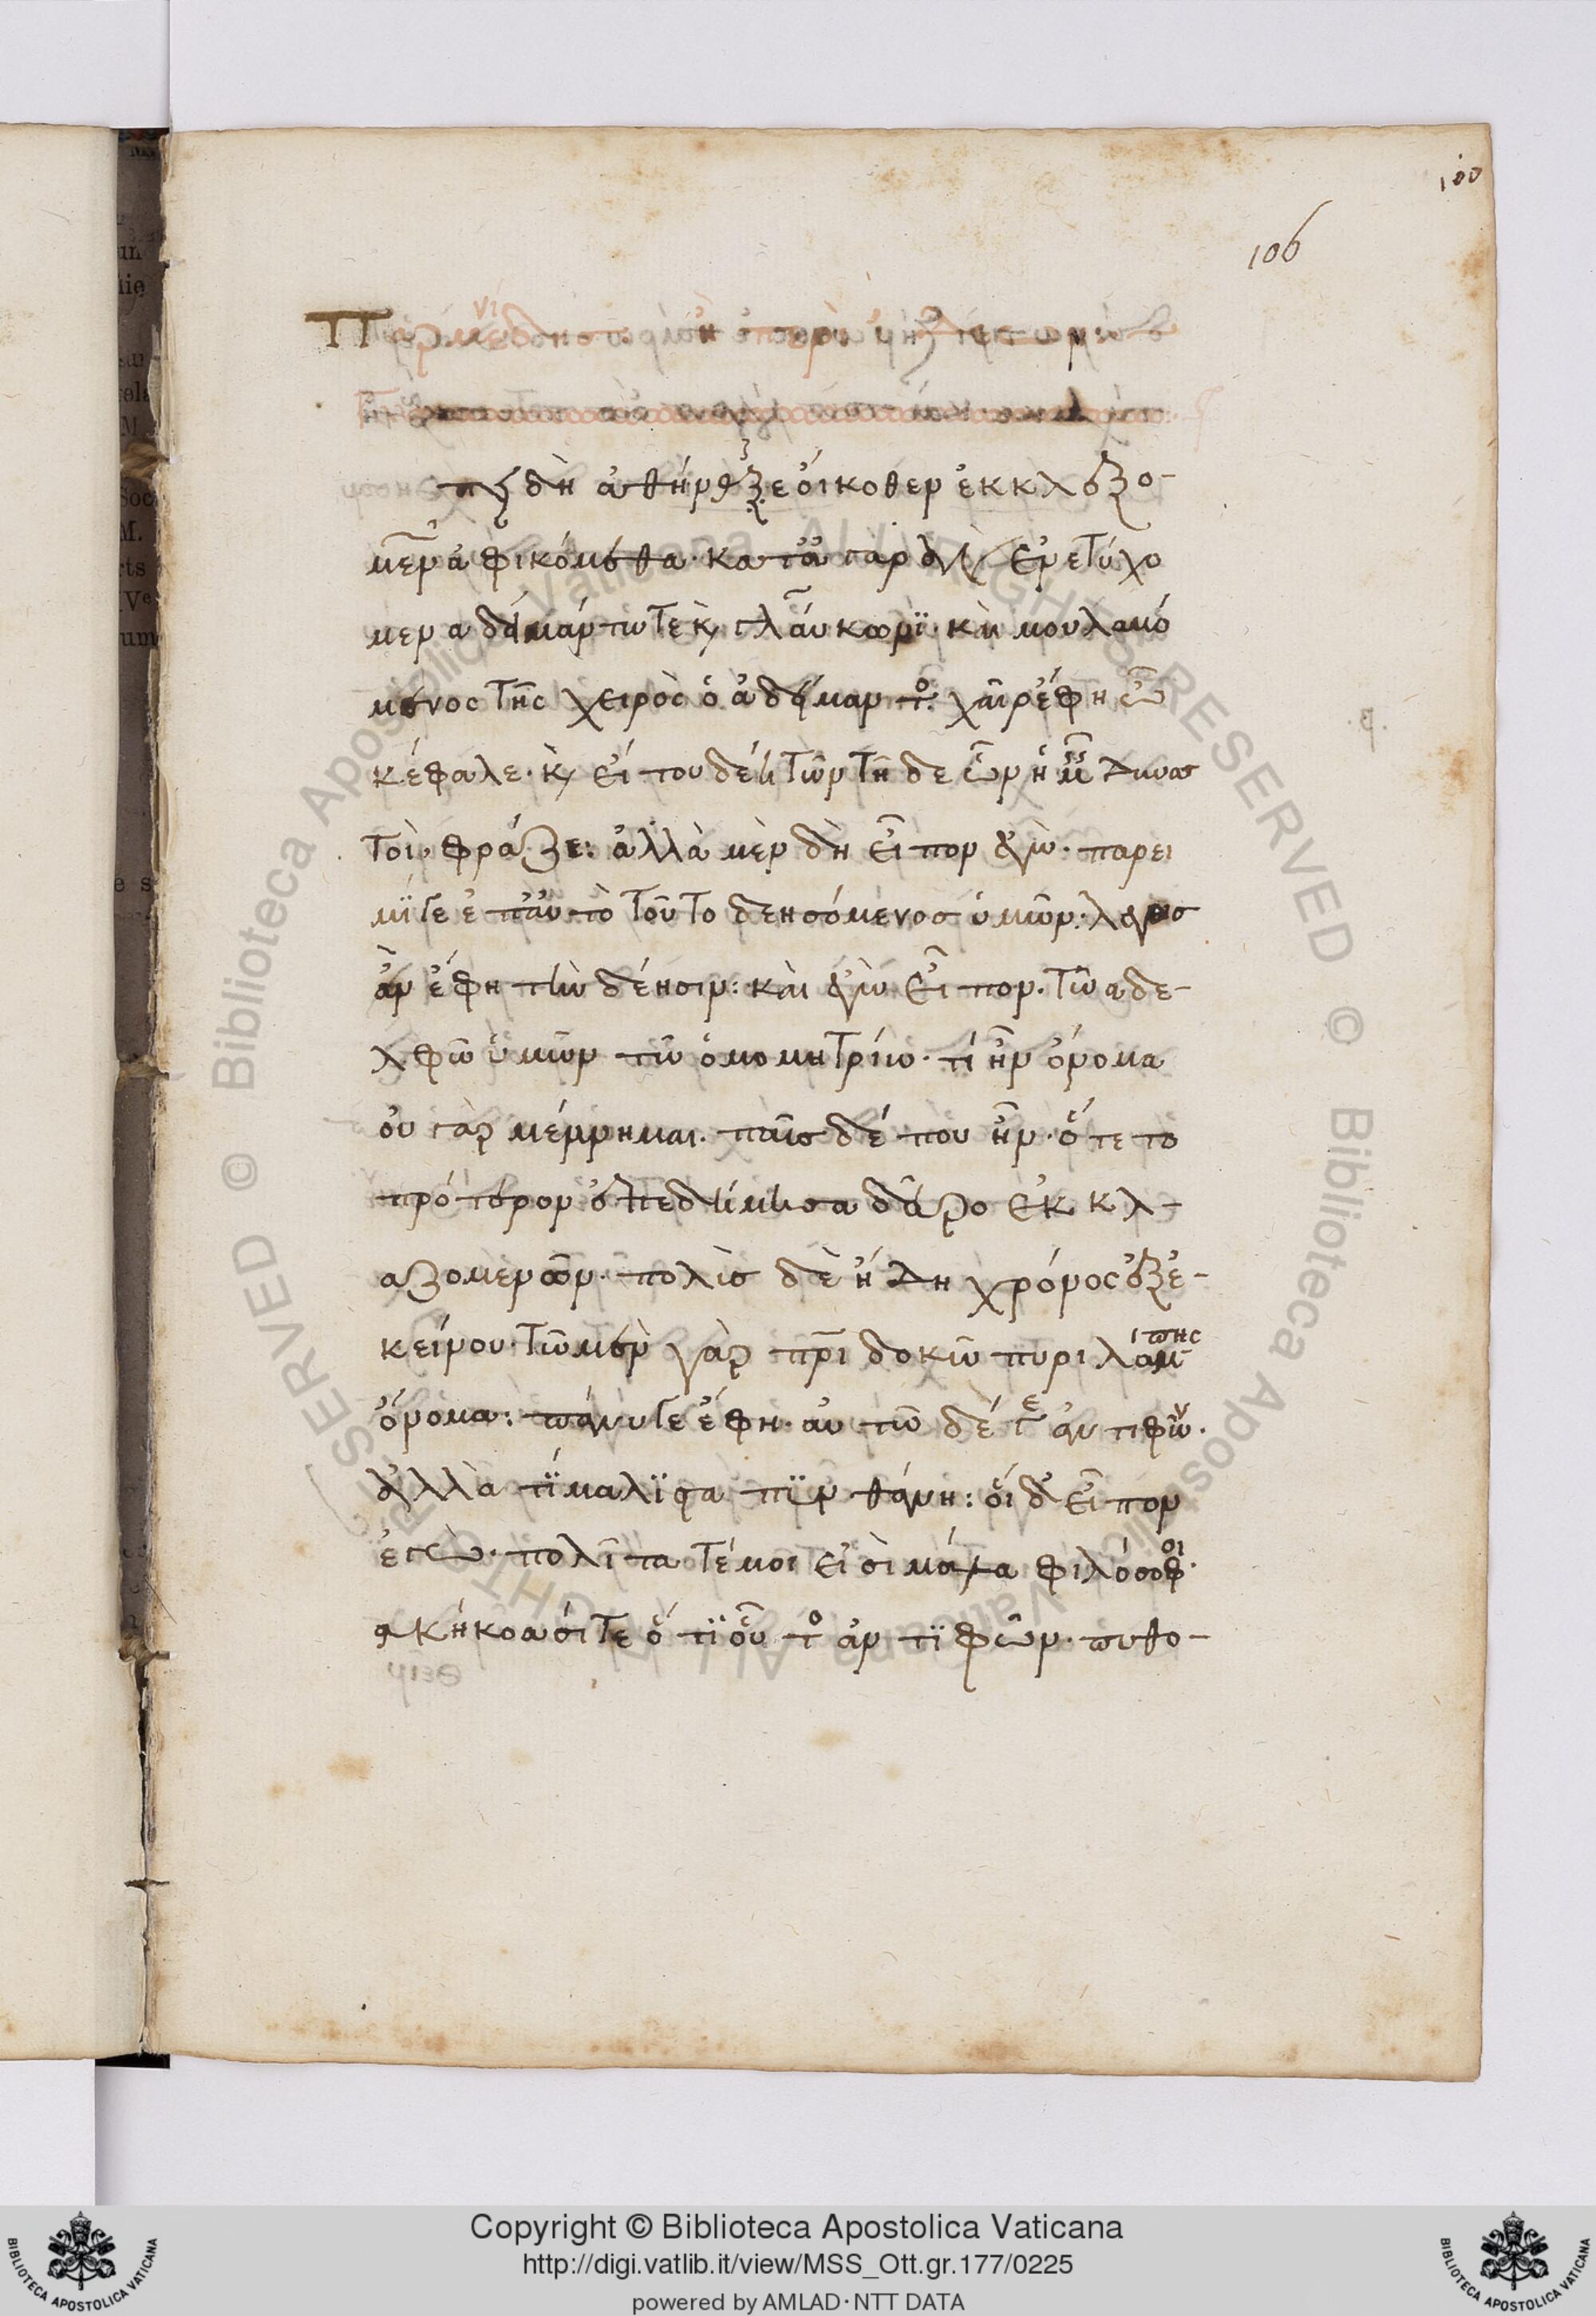 100
106
πειδὴ ἀθήνηθεν οἴκοθεν ἐκ κλαζο-
μενῶν ἀφικόμεθα· κατ' ἀγορὰν ἐνετύχο
μεν αδειμάντω τε κ γλαύκωνϊ· καὶ μου λαμό
μενος τῆς χειρὸς ὁ ἀδείμαν το. χαῖρ' ἔφη ὦ
κέφαλε· κ εἴ του δέη τῶν τῇδε ὧν ἡμεῖς δυνα
τοὶ, φράζε: ἀλλὰ μὲν δὴ εἶπον ἐγὼ· πάρει
μί γε ἐπ' αὐτὸ τοῦτο δεησόμενος ὑμῶν· λέγοις
ἂν ἔφη τὴν δέησιν: καὶ ἐγὼ εἶπον. τῶ αδε-
λφῶ ὑμῶν τῶ ὁμομητρίω· τί ἦν ὄνομα
οὐ γὰρ μέμνημαι. παῖς δέ που ἦν· ὅτε το
πρότερον ἐπεδήμησα δεῦρο ἐκ κλ-
αζομενῶν· πολὺς δὲ ἤδη χρόνος ἐξ ἐ-
κείνου· τῶ μὲν γὰρ πρὶ δοκῶ πυριλάμπης
ὄνομα: πάνυ γε ἔφη· αὐτῶ δέ γε ἀντιφῶν.
ἀλλὰ τί μάλϊστα πϋνθάνη: οἵδ' εἶπον
ἐγὼ· πολῖταί τέ μοι εἰσὶ μάλα φιλόσοφοι·
ἀκηκόασί τε ὅτϊ οὗτο ἀντϊφῶν· πυθο-
Copyright © Biblioteca Apostolica Vaticana
http://digi.vatlib.it/view/MSS_Ott.gr.177/0225
powered by AMLAD·NTT DATA